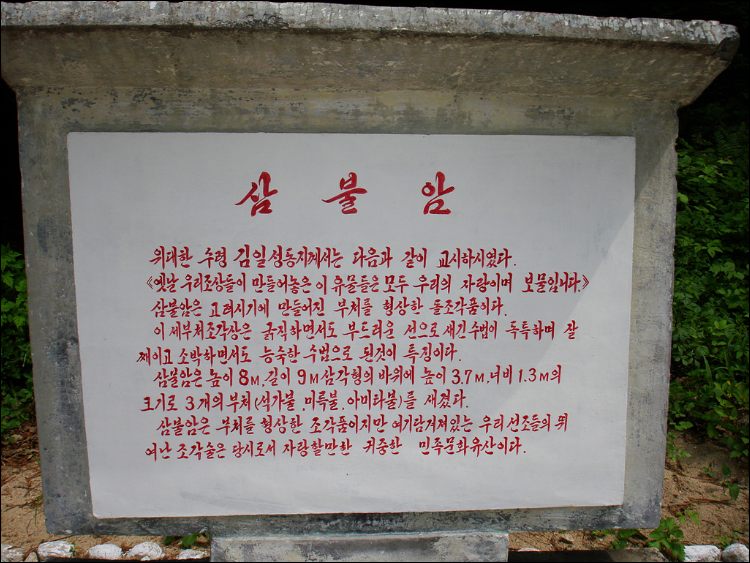 삼불암
위대한 수령 김일성동지께서는 다음과 같이 교시하시였다.
《옛날 우리조상들이 만들어놓은 이 유물들은 모두 우리의 자랑이며 보물입니다》
삼불암은 고려시기에 만들어진 부처를 형상한 돌조각품이다.
이 세부처조각상은 굵직하면서도 부드러운 선으로 새긴 수법이 독특하며 잘
째이고 소박하면서도 능숙한 수법으로 된것이 특징이다.
삼불암은 높이 8M, 길이 9M 삼각형의 바위에 높이 3.7M, 너비 1.3M의
크기로 3개의 부처(석가불, 미륵불, 아미타불)를 새겼다.
삼불암은 부처를 형상한 조각품이지만 여기담겨져있는 우리 선조들의 뛰
여난 조각술은 당시로서 자랑할만한 귀중한 민족문화유산이다.